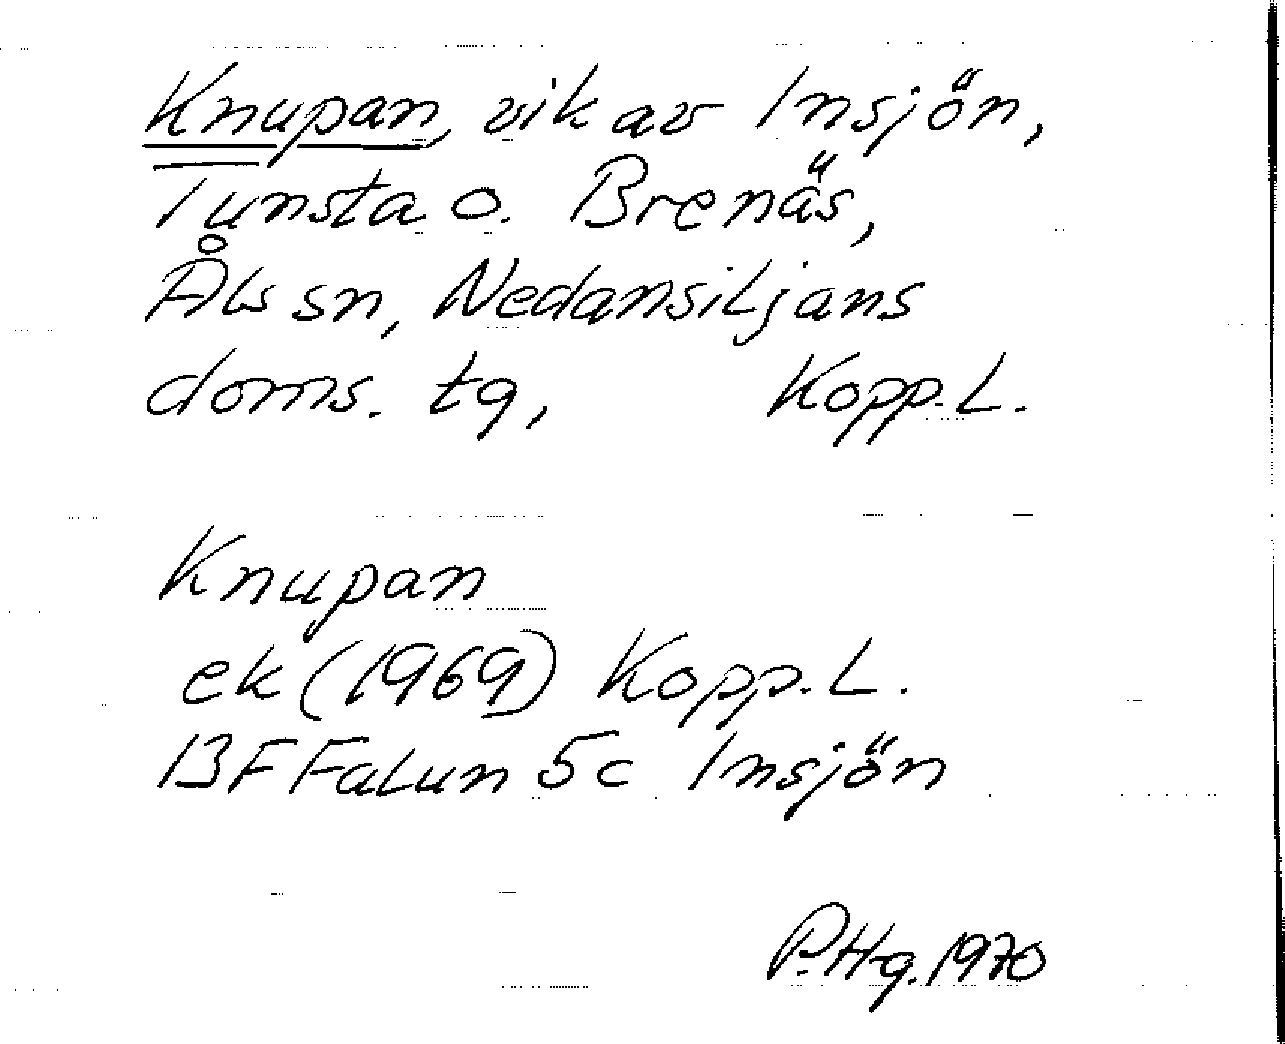 Knupan, vik av Insjön,
Tunsta o. Brenäs,
Åls sn, Nedansiljans
doms. tg, Kopp. L.
Knupan
ek (1969) Kopp. L.
13F Falun 5c Insjön
P. Hg. 1970